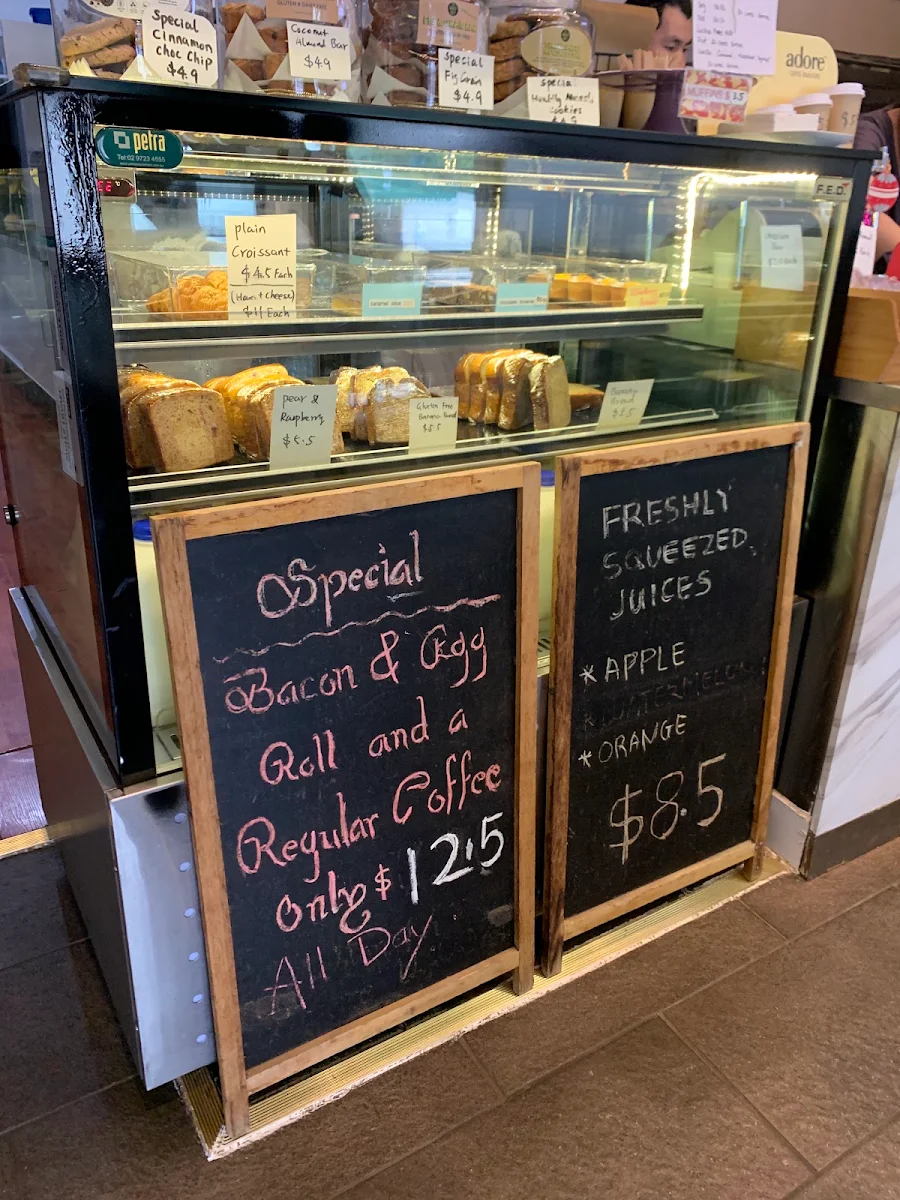 Special
Cinnamon
choc chip
$4.9
Coconut
Almond Bar
$4.9
Special
$4.9
Special
cookies
MUFFINS
adore
petra
Tel:02 9723 4555
F.E.D.
plain
Croissant
$4.5 Each
(Ham + Cheese)
$11 Each
pear &
Raspberry
Gluten Free
Banana Bread
$5.5
Banana
Bread
Special
Bacon & Egg
Roll and a
Regular Coffee
only $12.5
All Day
FRESHLY
SQUEEZED
JUICES
*APPLE
*WATERMELON
*ORANGE
$8.5